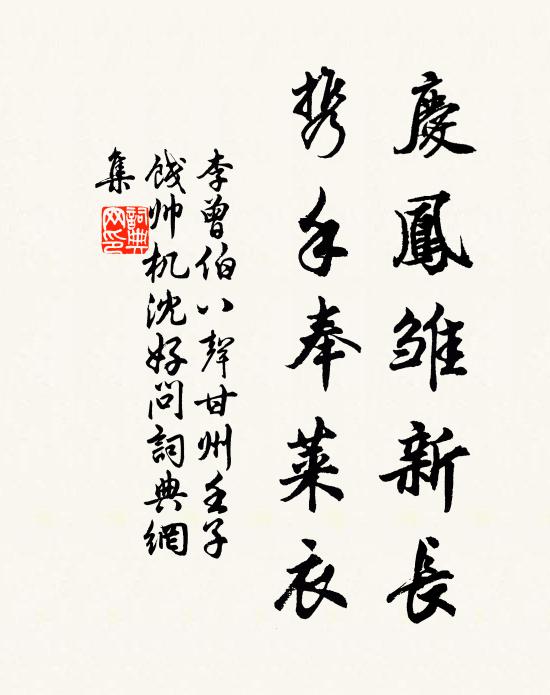 慶鳳雛新長
携手奉萊衣
李曾伯八聲甘州壬子
餞帅机沈好问詞典網
集
詞典网印